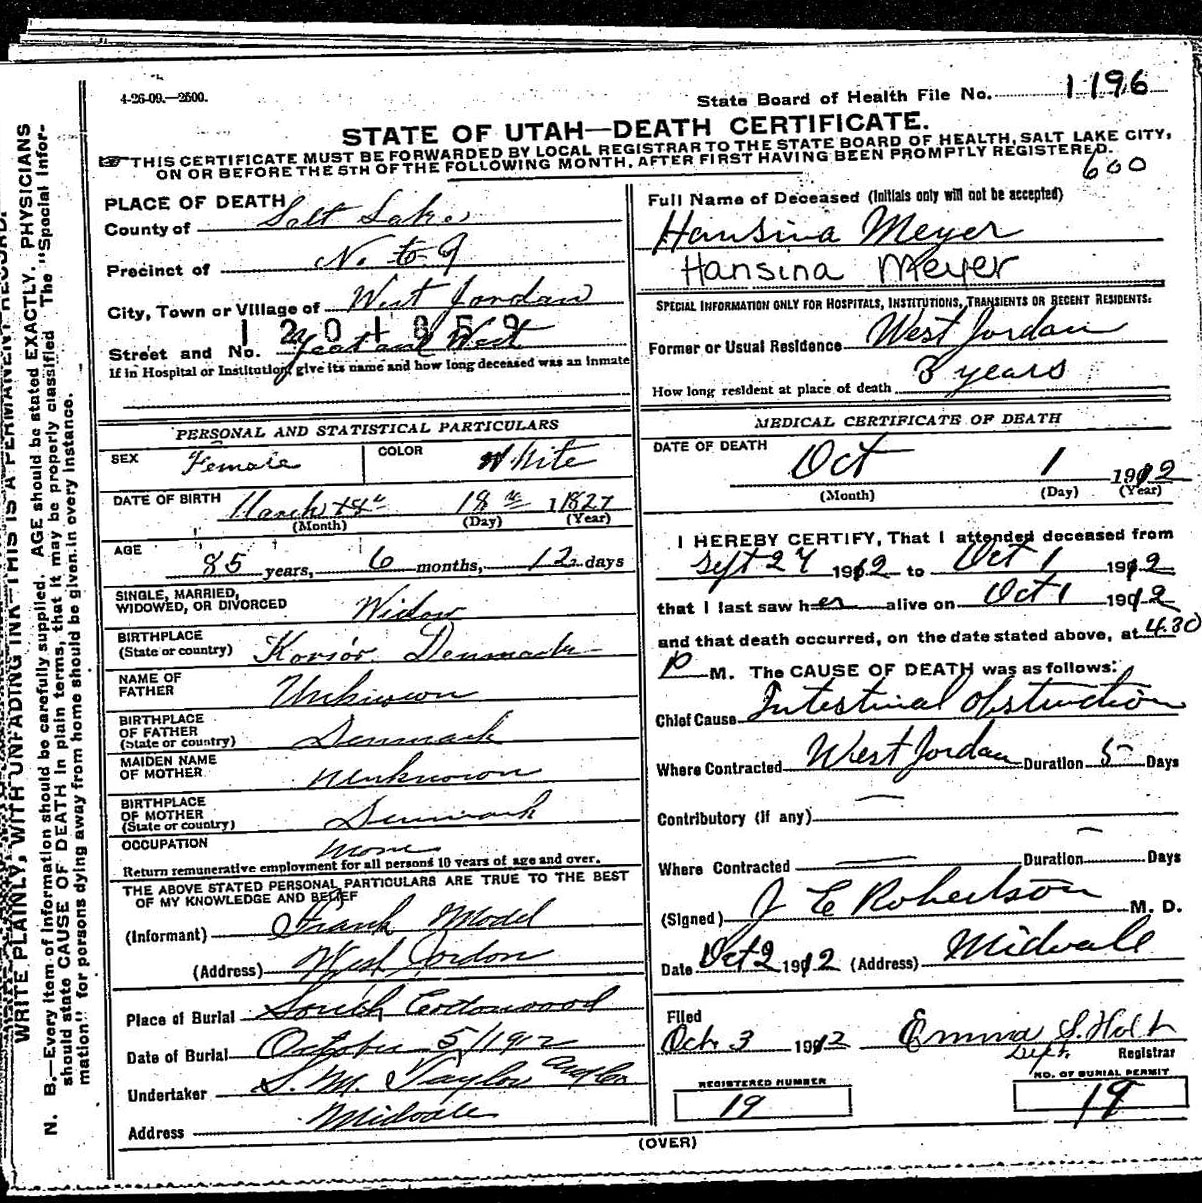 4-26-09.—2500.
State Board of Health File No. 1196
STATE OF UTAH—DEATH CERTIFICATE.
THIS CERTIFICATE MUST BE FORWARDED BY LOCAL REGISTRAR TO THE STATE BOARD OF HEALTH, SALT LAKE CITY,
ON OR BEFORE THE 5TH OF THE FOLLOWING MONTH, AFTER FIRST HAVING BEEN PROMPTLY REGISTERED.
600
PLACE OF DEATH
County of Salt Lake
Precinct of No 9
City, Town or Village of West Jordan
1201859
Street and No. West
If in Hospital or Institution, give its name and how long deceased was an inmate
PERSONAL AND STATISTICAL PARTICULARS
SEX Female COLOR White
DATE OF BIRTH March 18 1827
(Month) (Day) (Year)
AGE 85 years, 6 months, 12 days
SINGLE, MARRIED,
WIDOWED, OR DIVORCED Widow
BIRTHPLACE
(State or country) Korsör Denmark
NAME OF
FATHER Unknown
BIRTHPLACE
OF FATHER
(State or country) Denmark
MAIDEN NAME
OF MOTHER Unknown
BIRTHPLACE
OF MOTHER
(State or country) Denmark
OCCUPATION
Return remunerative employment for all persons 10 years of age and over.
THE ABOVE STATED PERSONAL PARTICULARS ARE TRUE TO THE BEST
OF MY KNOWLEDGE AND BELIEF
(Informant) Frank Model
(Address) West Jordon
Place of Burial South Cottonwood
Date of Burial October 5/1912
Undertaker S. M. Taylor
Address Midvale
Full Name of Deceased (Initials only will not be accepted)
Hansina Meyer
Hansina Meyer
SPECIAL INFORMATION ONLY FOR HOSPITALS, INSTITUTIONS, TRANSIENTS OR RECENT RESIDENTS:
Former or Usual Residence West Jordan
How long resident at place of death 3 years
MEDICAL CERTIFICATE OF DEATH
DATE OF DEATH
Oct 1 1912
(Month) (Day) (Year)
I HEREBY CERTIFY, That I attended deceased from
Sept 27 1912 to Oct 1 1912
that I last saw her alive on Oct 1 1912
and that death occurred, on the date stated above, at 4.30
P M. The CAUSE OF DEATH was as follows:
Chief Cause Intestinal obstruction
Where Contracted West Jordan Duration 5 Days
Contributory (if any) —
Where Contracted — Duration — Days
(Signed) J C Robertson M. D.
Date Oct 2 1912 (Address) Midvale
Filed
Oct 3 1912 Emma S. Holt
Dept Registrar
REGISTERED NUMBER
19
NO. OF BURIAL PERMIT
19
(OVER)
WRITE PLAINLY, WITH UNFADING INK—THIS IS A PERMANENT RECORD.
N. B.—Every item of information should be carefully supplied. AGE should be stated EXACTLY. PHYSICIANS
should state CAUSE OF DEATH in plain terms, that it may be properly classified. The "Special Infor-
mation" for persons dying away from home should be given in every instance.